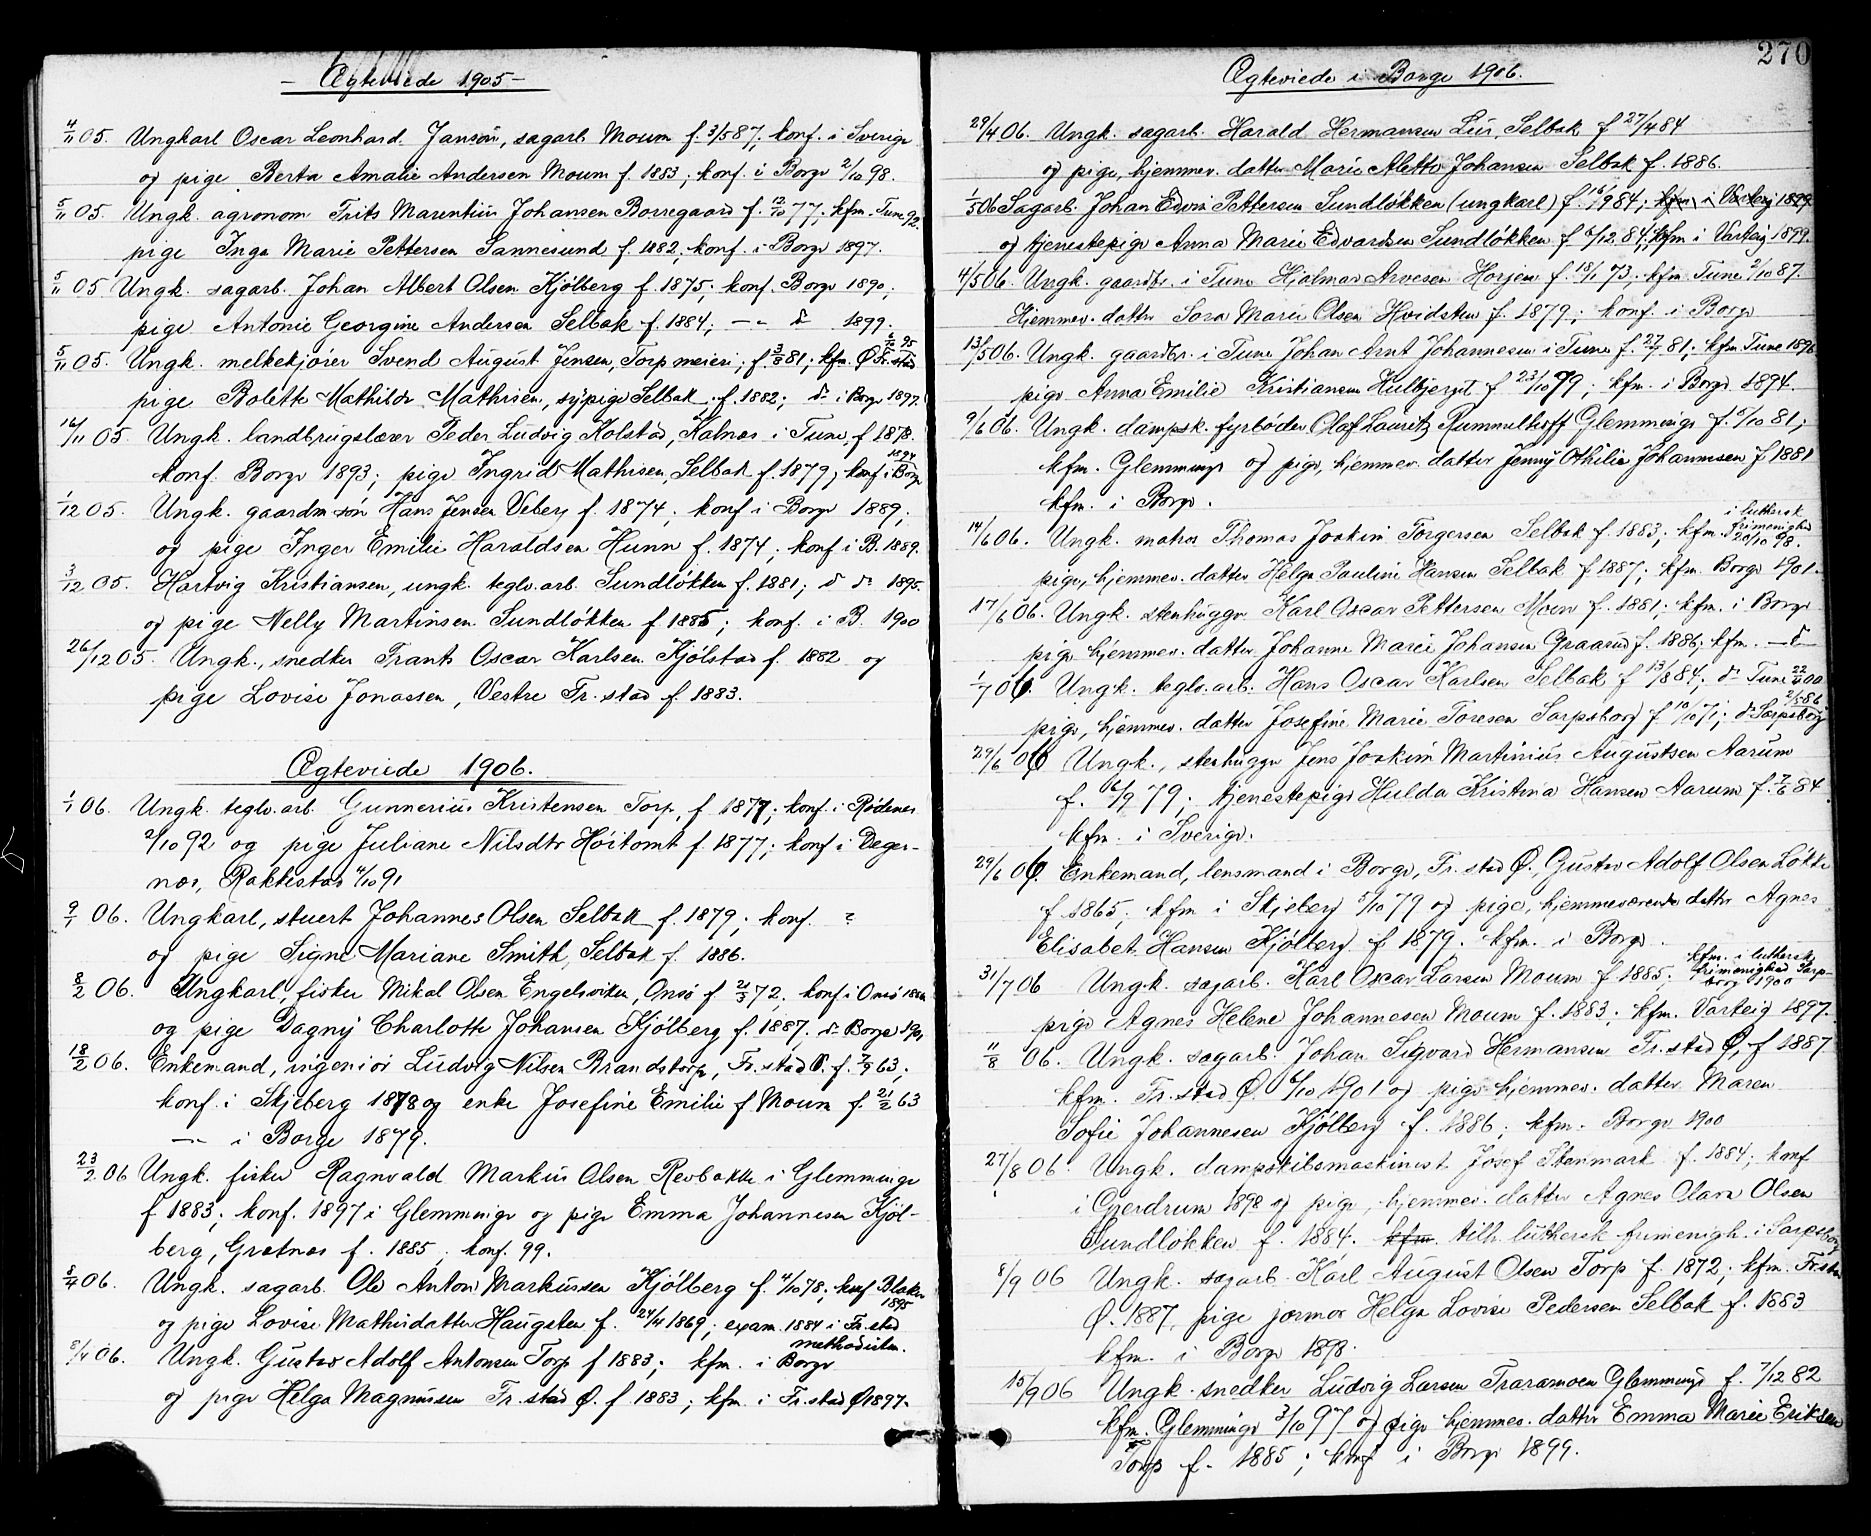 - Ægteviede 1905 -
4/11 05. Ungkarl Oscar Leonhard Janson, sagarb. Moum f. 3/5 87; konf. i Sverige
og pige Berta Amalie Andersen Moum f. 1883; konf. i Borge 2/10 98.
5/11 05. Ungk. agronom Frits Marentius Johansen Borregaard f. 12/10 77; kfm. Tune 92.
pige Inga Marie Pettersen Sannesund f. 1882; konf. i Borge 1897.
5/11 05 Ungk. sagarb. Johan Albert Olsen Kjølberg f. 1875; konf. Borge 1890;
pige Antonie Georgine Andersen Selbak f. 1884; -"- d 1899.
5/11 05. Ungk. melkekjører Svend August Jensen, Torp meieri; f. 3/3 81; kfm. Ø Fr.stad 95
pige Bolette Mathilde Mathisen, sypige Selbak; f. 1882; do i Borge 1897.
16/11 05. Ungk. landbrugslærer Peder Ludvig Holstad, Kalnæs i Tune, f. 1878.
konf. Borge 1893; pige Ingrid Mathisen, Selbak f. 1879; konf. i Borge 1894
1/12 05. Ungk. gaardm.søn Hans Jensen Veberg f. 1874; konf i Borge 1889;
og pige Inger Emilie Haraldsen Hunn f. 1874; konf i B. 1889.
3/12 05. Hartvig Kristiansen, ungk. teglv.arb. Sundløkken f. 1881; d do 1895.
og pige Nelly Martinsen Sundløkken f. 1885; konf. i B. 1900
26/12 05. Ungk., snedker Frants Oscar Karlsen Kjølstad f. 1882 og
pige Lovise Jonassen, Vestre Fr.stad f. 1883.
Ægteviede 1906.
1/1 06. Ungk. teglv.arb. Gunnerius Kristensen Torp, f 1877; konf. i Rødenes
2/10 92 og pige Juliane Nilsdtr Høitomt f. 1877; konf i Deger-
nes, Rakkestad 4/10 91
9/1 06. Ungkarl, stuert Johannes Olsen Selbak f. 1879; konf. ?
og pige Signe Mariane Smith, Selbak f. 1886.
8/2 06. Ungkarl, fisker Mikal Olsen Engelsviken, Onsø f 21/3 72; konf i Onsø
og pige Dagny Charlotte Johansen Kjølberg f. 1887; do Borge 1901
18/2 06. Enkemand, ingeniør Ludvig Nilsen Brandstorp, Fr.stad Ø. f. 7/9 63;
konf. i Skjeberg 1878 og enke Josefine Emilie f Moum f. 21/2 63
-"- i Borge 1879.
23/2 06 Ungk. fisker Ragnvald Markus Olsen Revbakke i Glemminge
f 1883; konf. 1897 i Glemminge og pige Emma Johannesen Kjøl-
berg, Gretnes f. 1885; konf. 99.
8/4 06. Ungk. sagarb. Ole Anton Markussen Kjølberg f. 4/10 78; konf Blaker 1895
og pige Lovise Mathisdatter Haugsten f. 24/4 1869; exam. 1884 i Fr.stad methodistm.
8/4 06. Ungk. Gustav Adolf Antonsen Torp f 1883; kfm. i Borge
og pige Helga Magnussen Fr.stad Ø. f 1883; kfm. i Fr.stad Ø 1897.
270
Ægteviede i Borge 1906.
29/4 06. Ungk. sagarb. Harald Hermansen Lie, Selbak f 27/4 84
og pige, hjemmev. datter Marie Alette Johansen Selbak f. 1886.
1/5 06 Sagarb. Johan Edvin Pettersen Sundløkken (ungkarl) f. 16/9 84; kfm. i Varteig 1899.
og tjenestepige Anna Marie Edvardsen Sundløkken f. 6/12 84; kfm i Varteig 1899.
4/5 06. Ungk. gaardbr. i Tune Hjalmar Arvesen Horgen f. 18/1 73; kfm. Tune 2/10 87.
Hjemmev. datter Sara Marie Olsen Hvidsten f. 1879; konf. i Borge
13/5 06. Ungk. gaardbr. i Tune Johan Arnt Johannesen i Tune f. 27/7 81; kfm. Tune 1896
pige Anna Emilie Kristiansen Hulbjerget f 23/10 79; kfm. i Borge 1894.
9/6 06. Ungk. dampsk. fyrbøder Olaf Lauritz Rummelhoff Glemminge f. 6/10 81;
kfm. Glemminge og pige, hjemmev. datter Jenny Othilie Johannesen f 1881
kfm. i Borge.
14/6 06. Ungk. matros Thomas Joakim Torgersen Selbak f. 1883; kfm. i luthersk frimenighed 20/10 98.
pige, hjemmev. datter Helga Pauline Hansen Selbak f. 1887; kfm. Borge 1901.
17/6 06. Ungk. stenhugger Karl Oscar Pettersen Moen f. 1881; kfm. i Borge
pige hjemmev. datter Johanne Marie Johansen Graarud f. 1886; kfm. - d -
1/7 06. Ungk. teglv.arb. Hans Oscar Karlsen Selbak f 13/8 84; do Tune 22/4 00
pige, hjemmev. datter Josefine Marie Toresen Sarpsborg f 10/10 71; d Sarpsborg 2/5 86
29/6 06 Ungk., stenhugger Jens Joakim Martinius Augustsen Aarum
f. 16/9 79; tjenestepige Hulda Kristina Hansen Aarum f. 7/6 84
kfm. i Sverige.
29/6 06. Enkemand, lensmand i Borge, Fr.stad Ø., Gustav Adolf Olsen Løkke
f. 1865; kfm i Skjeberg 5/10 79 og pige, hjemmeværende datter Agnes
Elisabet Hansen Kjølberg f 1879. kfm. i Borge.
31/7 06 Ungk. sagarb. Karl Oscar Larsen Moum f 1885; kfm. i luthersk frimenighed Sarpsborg 1900
pige Agnes Helene Johannesen Moum f. 1883; kfm. Varteig 1897.
11/8 06. Ungk. sagarb. Johan Sigvard Hermansen Fr.stad Ø, f 1887
kfm. Fr.stad Ø. 6/10 1901 og pige hjemmev. datter Maren
Sofie Johannesen Kjølberg f. 1886; kfm. Borge 1900
27/8 06. Ungk. dampskibsmaskinist Josef Stenmark f. 1884; konf
i Gjerdrum 1898 og pige, hjemmev. datter Agnes Clara Olsen
Sundløkken f. 1884. kfm. tilh. luthersk frimenigh. i Sarpsborg
8/9 06 Ungk. sagarb. Karl August Olsen Torp f. 1872; kfm. Fr.stad
Ø. 1887, pige jormor Helga Lovise Pedersen Selbak f. 1883
kfm. i Borge 1898.
15/9 06 Ungk. snedker Ludvig Larsen Traramoen Glemminge f. 7/12 82
kfm. Glemminge 3/10 97 og pige hjemmev. datter Emma Marie Eriksen
Torp f. 1885; konf i Borge 1899.